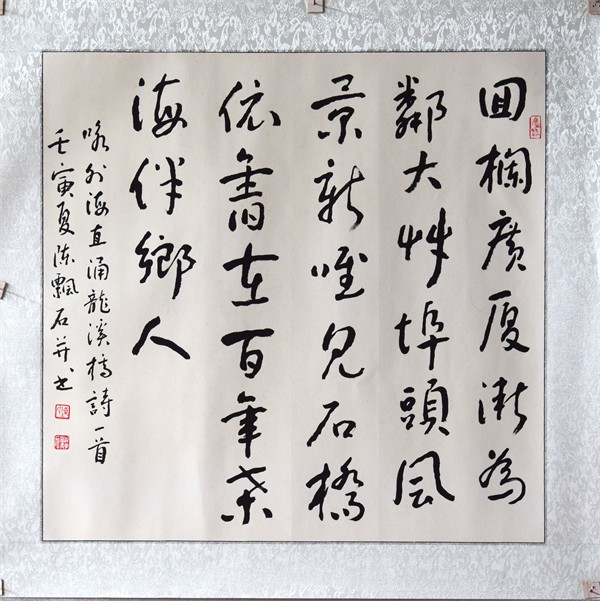 囬欄廣厦漸為
鄰大艸埠頭風
景新唯見石橋
依舊在百年桒
海伴鄉人
咏外海直涌龍溪橋詩一首
壬寅夏陈飄石并书